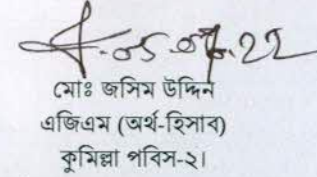 05.07.22
মোঃ জসিম উদ্দিন
এজিএম (অর্থ-হিসাব)
কুমিল্লা পবিস-২।